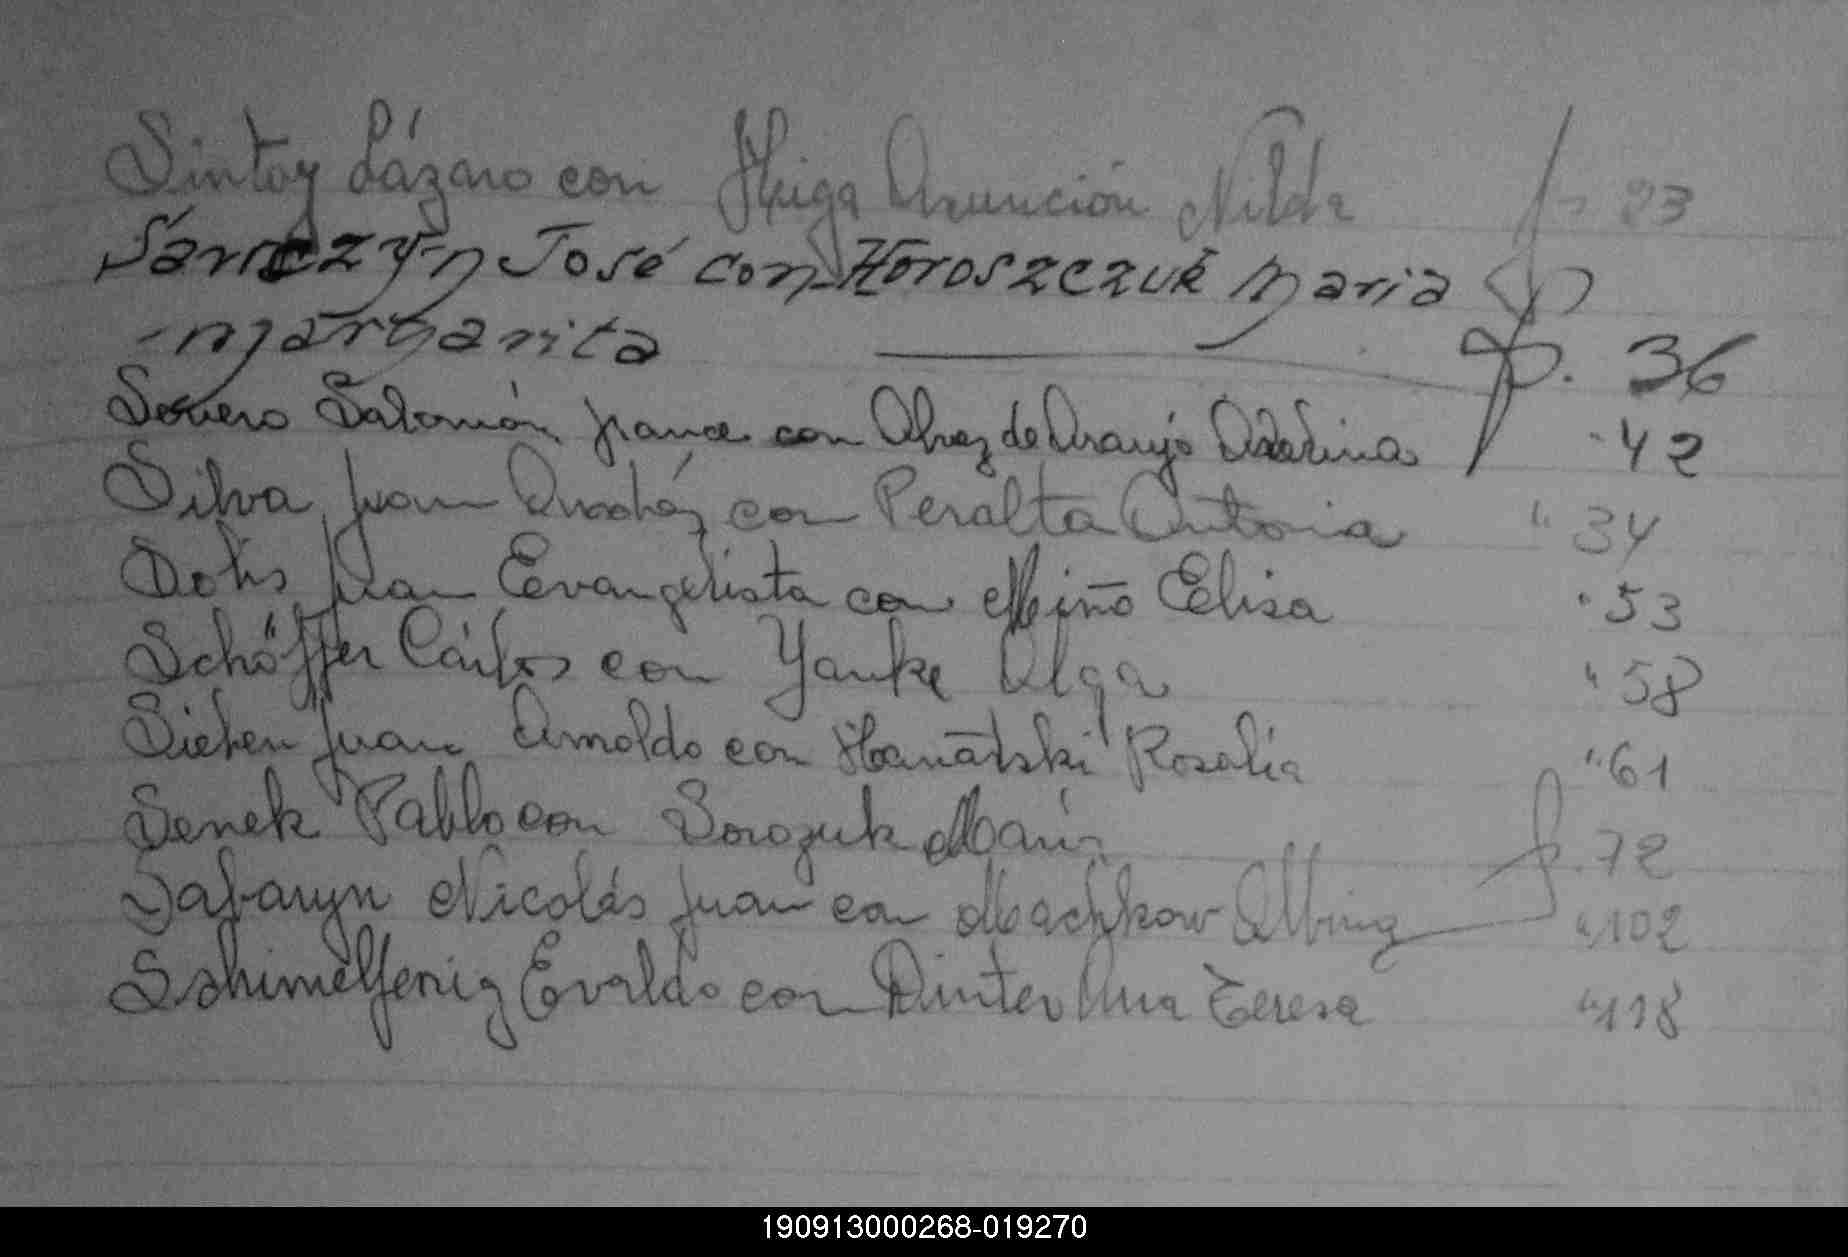 Sintoy Lázaro con Higa Asunción Nilda f 23
Sanczyn José con Horoszczuk Maria
-Margarita f. 36
Severo Salomón con Alvez de Araujo 42
Silva Juan Andréz con Peralta Antonia " 34
Juan Evangelista con Miño Elisa " 53
Schöffer Cárlos con Yanke Olga " 58
Sieben Juan Arnoldo con Rosalia " 61
Senek Pablo con Sorozuk María f. 72
Nicolás Juan con Machkow Albina " 102
Schimelfenig Evaldo con Dinter Ana Teresa " 118
190913000268-019270